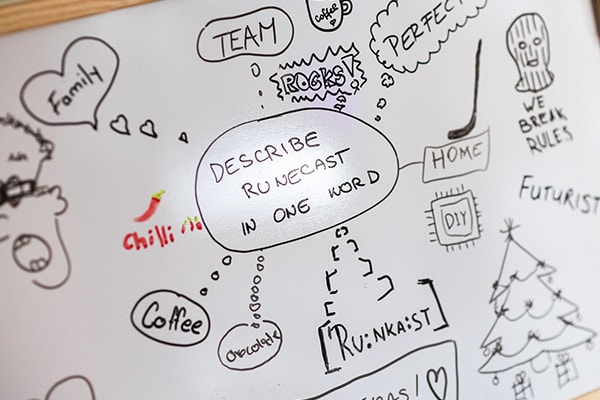 TEAM
coffee
ROCKS!
PERFECT
Family
WE
BREAK
RULES
DESCRIBE
RUNECAST
IN ONE WORD
HOME
FUTURIST
DIY
Chilli
Coffee
chocolate
[RU:NKA:ST]